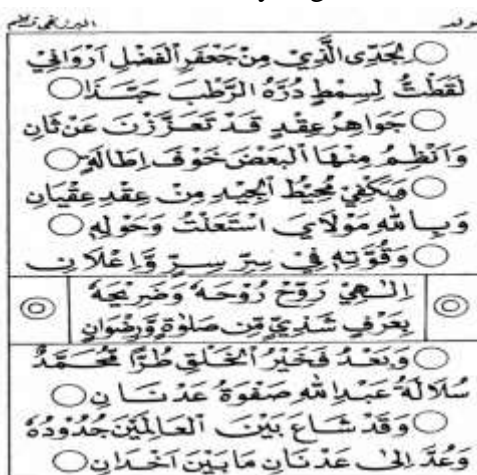 مولد
البرزنجي نظم
لِجَدِّى الَّذِيْ مِنْ جَعْفَرِ الْفَضْلِ اَرْوَانِيْ
لَقَطْتُ لِسِمْطٍ دُرَّهُ الرَّطْبَ حَبَّذَا
جَوَاهِرُ عِقْدٍ قَدْ تَعَزَّزْتَ عَنْ ثَانِ
وَاَنْظِمُ مِنْهَا الْبَعْضَ خَوْفَ اِطَالَةٍ
وَيَكْفِيْ مُحِيْطُ الْجِيْدِ مِنْ عِقْدِ عِقْيَانِ
وَبِاللّٰهِ مَوْلَايَ اسْتَعَنْتُ وَحَوْلِهِ
وَقُوَّتِهِ فِيْ سِرِّ سِرِّيْ وَاِعْلَانِ
اِلٰهِيْ رَوِّحْ رُوْحَهُ وَضَرِيْحَهُ
بِعَرْفٍ شَذِيٍّ مِّنْ صَلٰوةٍ وَّرِضْوَانِ
وَبَعْدُ فَخَيْرُ الْخَلْقِ طُرًّا مُحَمَّدٌ
سُلَالَةُ عَبْدِ اللّٰهِ صَفْوَةُ عَدْنَانِ
وَقَدْ شَاعَ بَيْنَ الْعَالَمِيْنَ جُدُوْدُهُ
وَعُدَّ اِلٰى عَدْنَانِ مَا بَيْنَ اَخْدَانِ